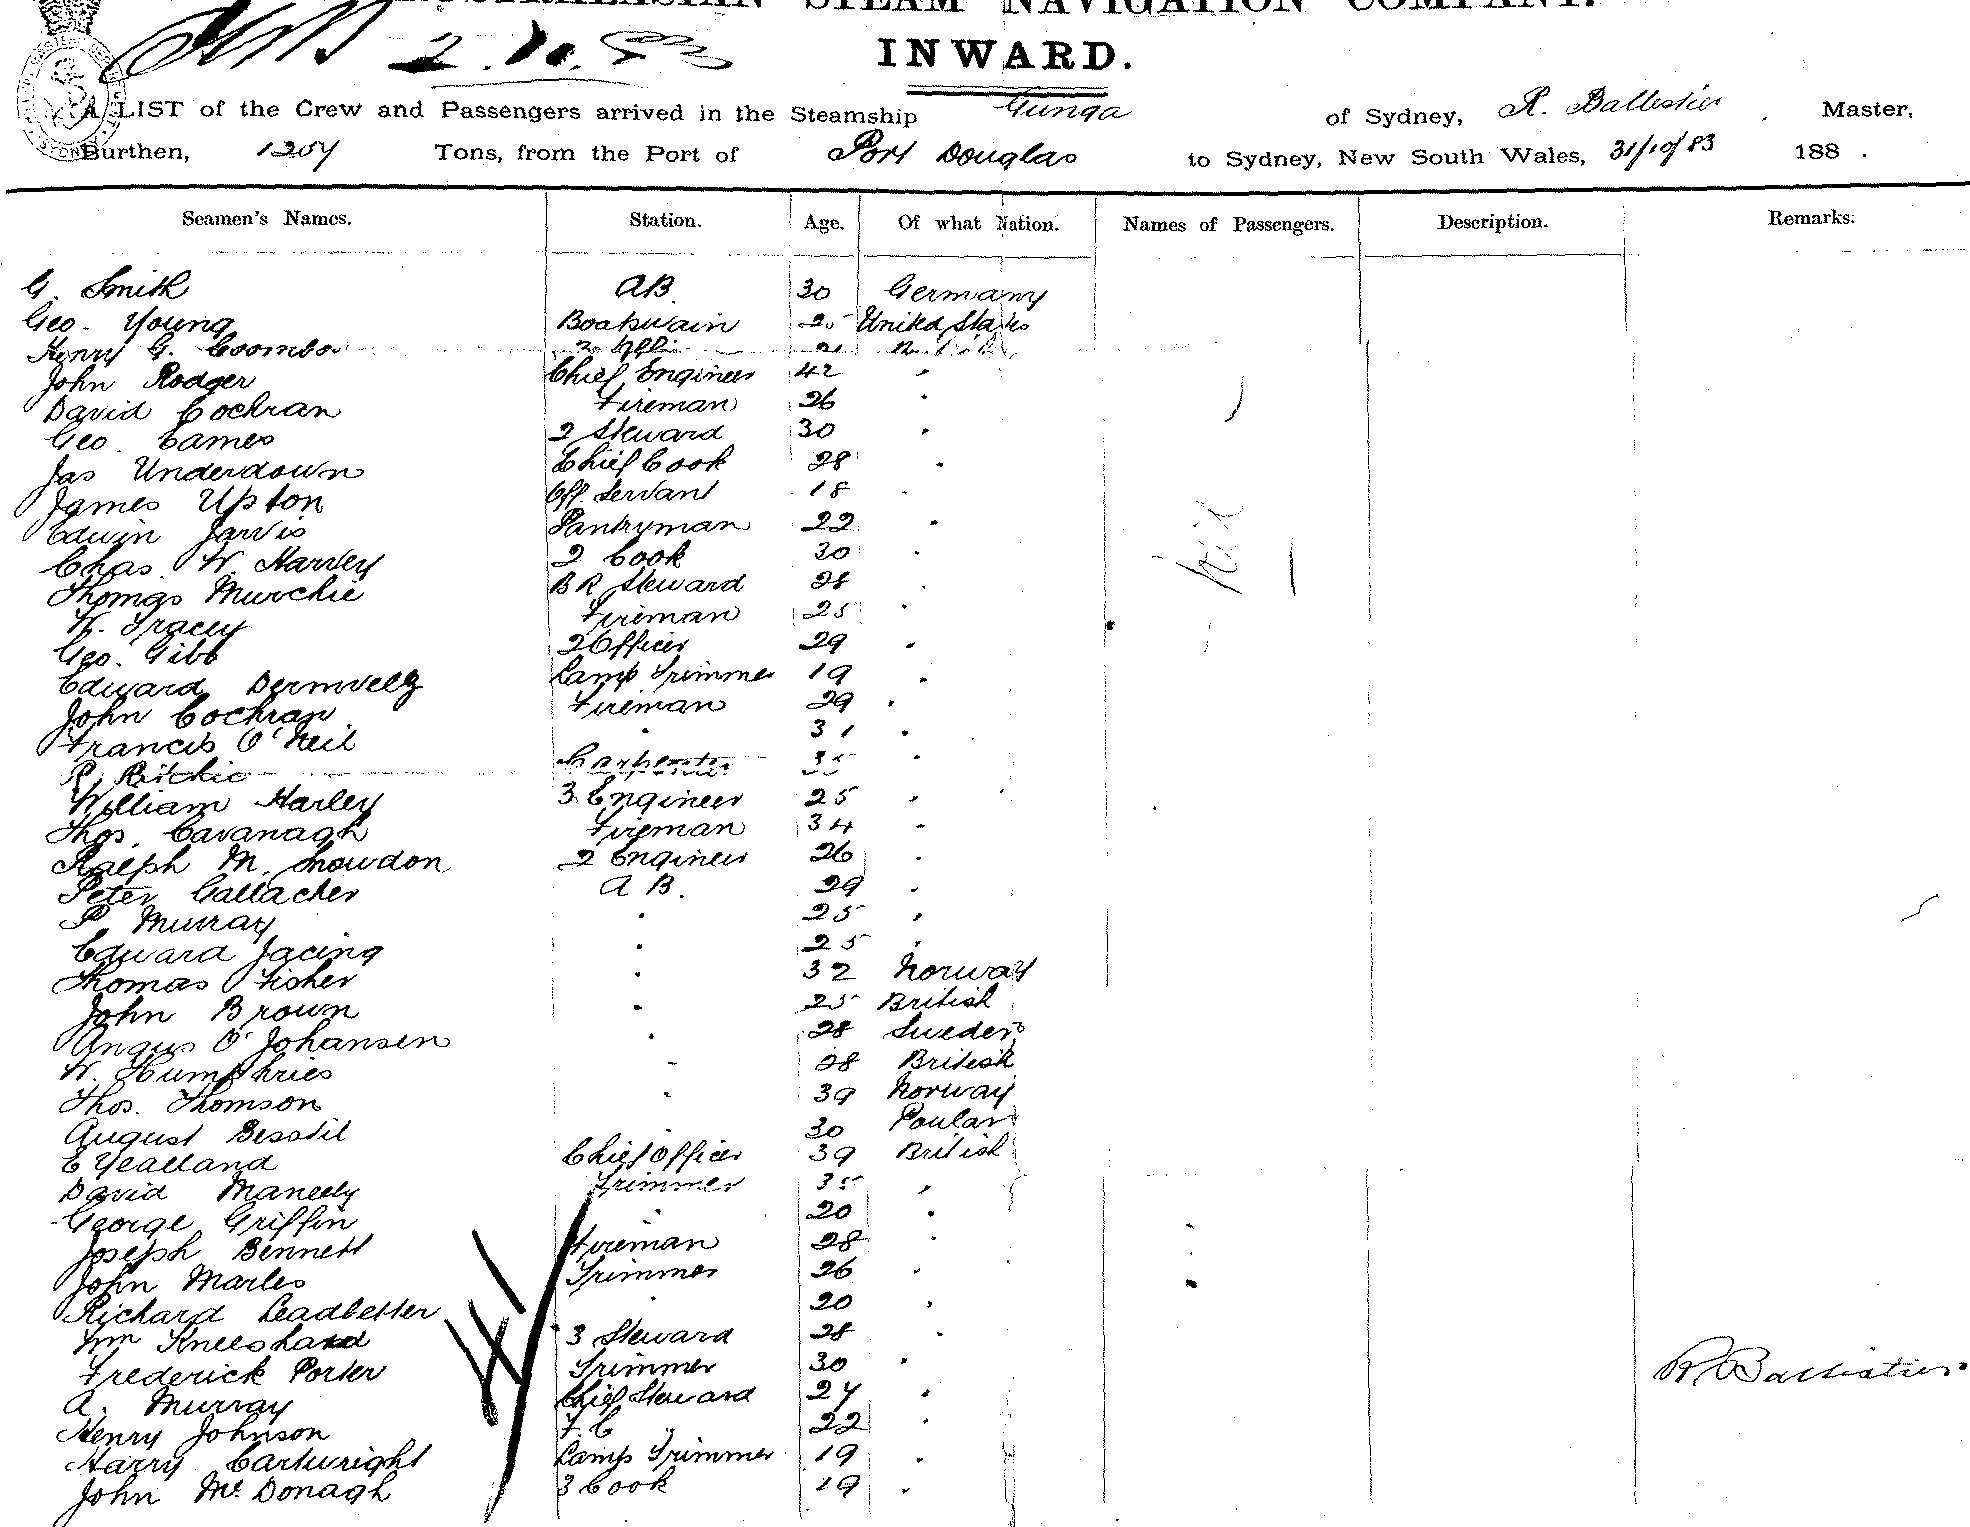 AUSTRALASIAN STEAM NAVIGATION COMPANY.
2.10.83
INWARD.
A LIST of the Crew and Passengers arrived in the Steamship Gunga of Sydney, R. Ballestier Master,
Burthen, 1257 Tons, from the Port of Port Douglas to Sydney, New South Wales, 31/10/83 188 .
Seamen's Names. Station. Age. Of what Nation. Names of Passengers. Description. Remarks.
G. Smith AB 30 Germany
Geo. Young Boatswain 25 United States
Henry G. Coombs 21
John Rodger Chief Engineer 42 "
David Cochran Fireman 26 "
Geo. Eames 2 Steward 30 "
Jas Underdown Chief Cook 28 "
James Upton Off. Servant 18 "
Edwin Jarvis Pantryman 22 "
Chas. W. Harvey 2 Cook 30 "
Thomas Murchie B R Steward 28 "
W. Tracey Fireman 25 "
Geo. Gibb 2 Officer 29 "
Edward Lamp Trimmer 19 "
John Cochran Fireman 29 "
Francis O'Neil " 31 "
R. Ritchie Carpenter 35 "
William Harley 3 Engineer 25 "
Thos. Cavanagh Fireman 34 "
Ralph M. Snowdon 2 Engineer 26 "
Peter Gallacher A B. 29 "
P Murray " 25 "
Edward Jacing " 25 "
Thomas Fisher " 32 Norway
John Brown " 25 British
Angus O'Johansen " 28 Sweden
W. Humphries " 28 British
Thos. Thomson " 39 Norway
August " 30
E Yealland Chief Officer 39 British
David Maneely Trimmer 35 "
George Griffin " 20 "
Joseph Bennett Fireman 28 "
John Marles Trimmer 26 "
Richard Leadbetter " 20 "
Wm Kneeshaw 3 Steward 28 "
Frederick Porter Trimmer 30 "
A. Murray Chief Steward 27 "
Henry Johnson F. C 22 "
Harry Cartwright Lamp Trimmer 19 "
John McDonagh 3 Cook 19 "
R Ballestier